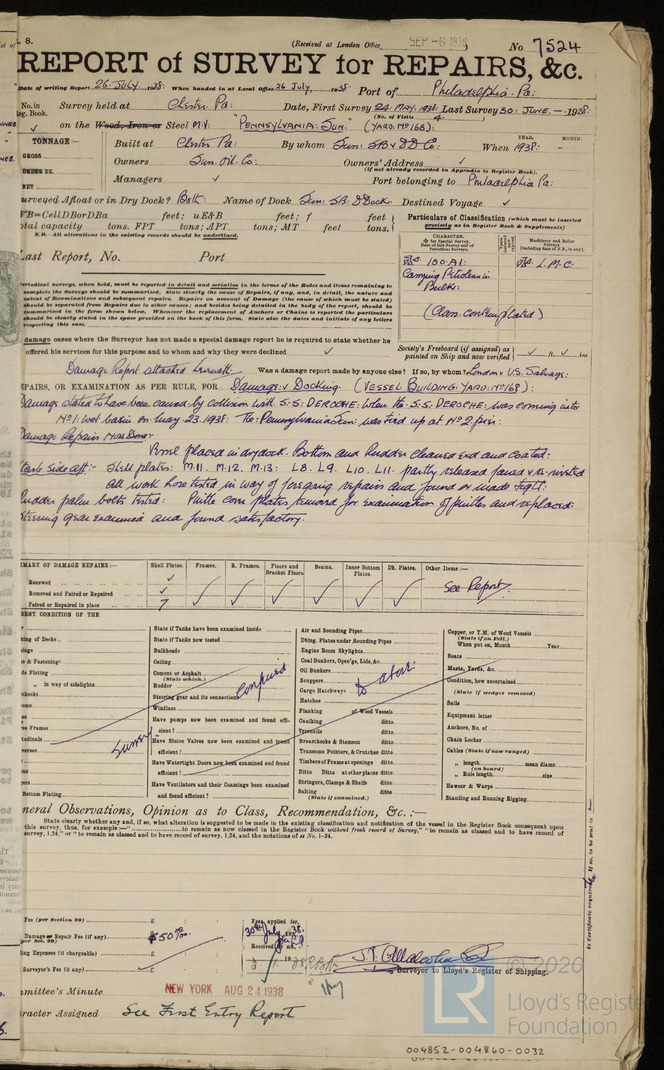 (Received at London Office SEP -6 1938
No 7524
REPORT of SURVEY for REPAIRS, &c.
Date of writing Report 26 July 1938. When handed in at Local Office 26 July, 1938. Port of Philadelphia. Pa:
No. in Survey held at Chester Pa: Date, First Survey 24 May. 1938. Last Survey 30: June. - 1938:
(No. of Visits 4.
on the Wood, Iron or Steel M.V. "Pennsylvania: Sun." (Yard. No 168).
TONNAGE:— Built at Chester Pa: By whom Sun: S.B. & D.D. Co: When 1938: -
YEAR. MONTH.
GROSS
Owners Sun. Oil. Co: Owners' Address ✓
(if not already recorded in Appendix to Register Book).
UNDER DK.
NET
Managers ✓ Port belonging to Philadelphia Pa:
Surveyed Afloat or in Dry Dock? Both: Name of Dock Sun: S.B: D.Dock. Destined Voyage ✓
WB=CellDBorDBa feet; uE&B feet; f feet
total capacity tons. FPT tons; APT tons; MT feet tons.
N.B.—All alterations in the existing records should be underlined.
Last Report, No. Port
Particulars of Classification (which must be inserted
precisely as in Register Book & Supplements)
CHARACTER.
Machinery and Boiler
Surveys
100-A1. L.M.C.
Carrying Petroleum in
Bulk:
(Class. contemplated)
Periodical surveys, when held, must be reported in detail and seriatim in the terms of the Rules and items remaining to
complete the Surveys should be summarized. State clearly the cause of Repairs, if any, and, in detail, the nature and
extent of Examinations and subsequent repairs. Repairs on account of Damage (the cause of which must be stated)
should be separated from Repairs due to other causes; and besides being detailed in the body of the report, should be
summarized in the form shewn below. Whenever the replacement of Anchors or Chains is reported the particulars
should be clearly stated in the space provided on the back of this form. State also the dates and initials of any letters
respecting this case.
damage cases where the Surveyor has not made a special damage report he is required to state whether he
offered his services for this purpose and to whom and why they were declined ✓
Society's Freeboard (if assigned) as
painted on Ship and now verified
Damage Report attached herewith Was a damage report made by anyone else? If so, by whom? London & U.S. Salvage:
REPAIRS, OR EXAMINATION AS PER RULE, FOR Damage: & Docking. (Vessel Building: Yard: No 168):
Damage stated to have been caused by collision with S.S: Deroche: when the S.S: Deroche: was coming into
No 1: wet basin on May-23-1938: The Pennsylvania Sun: was tied up at No 2 pier:
Damage Repairs Now Done:-
Vessel placed in drydock. Bottom and Rudder cleaned and coated:
Side Aft:- Shell plates: M.11. M.12. M.13: L8. L9. L10. L11. partly released faired & re-riveted
all work hose tested in way of foregoing repairs and found or made tight.
Rudder palm bolts tested: Pintle cover plates removed for examination of pintles and replaced:
Steering gear examined and found satisfactory.
SUMMARY OF DAMAGE REPAIRS:— Shell Plates. Frames. R. Frames. Floors and Bracket Floors Beams. Inner Bottom Plates. Dk. Plates. Other Items:—
Renewed ✓
Removed and Faired or Repaired ✓
Faired or Repaired in place 7
See Report.
PRESENT CONDITION OF THE
State if Tanks have been examined inside
State if Tanks now tested
Bulkheads
Ceiling
Cement or Asphalt
(State which.)
Rudder
Steering gear and its connections
Windlass
Have pumps now been examined and found effi-
cient?
Have Sluice Valves now been examined and found
efficient?
Have Watertight Doors now been examined and found
efficient?
Have Ventilators and their Coamings been examined
and found efficient?
Air and Sounding Pipes
Dblng. Plates under Sounding Pipes
Engine Room Skylights
Coal Bunkers, Open'gs, Lids, &c.
Oil Bunkers
Scuppers
Cargo Hatchways
Hatches
Planking of Wood Vessels
Caulking ditto
Treenails ditto
Breasthooks & Stemson ditto
Transoms, Pointers, & Crutches ditto
Timbers of Frame at openings ditto
Ditto Ditto at other places ditto
Stringers, Clamps & Shelfs ditto
Salting ditto
(State if examined.)
Copper, or Y.M. of Wood Vessels
(State if on Felt.)
When put on, Month Year
Boats
Masts, Yards, &c.
Condition, how ascertained
(State if wedges removed)
Sails
Equipment letter
Anchors, No. of
Chain Locker
Cables (State if now ranged)
„ length (on board) mean diamr.
„ Rule length size
Hawser & Warps
Standing and Running Rigging
Survey confined to above:
General Observations, Opinion as to Class, Recommendation, &c.:—
State clearly whether any, and if so, what alteration is suggested to be made in the existing classification and notification of the vessel in the Register Book consequent upon
this survey, thus, for example:—" to remain as now classed in the Register Book without fresh record of Survey," "to remain as classed and to have record of
survey, 1,24," or "to remain as classed and to have record of survey, 1,24, and the notations of ss No. 1—24.
Fee (per Section 29) £
Damage or Repair Fee (if any) $50.00
(per Sec. 29)
Travelling Expenses (if chargeable) £
Surveyor's Fee (if any) £
Fees applied for,
30th July 1938.
Received by me,
Surveyor to Lloyd's Register of Shipping.
Committee's Minute NEW YORK AUG 24 1938
Character Assigned See First Entry Report
© 2020
LR
Lloyd's Register
Foundation
004852-004860-0032